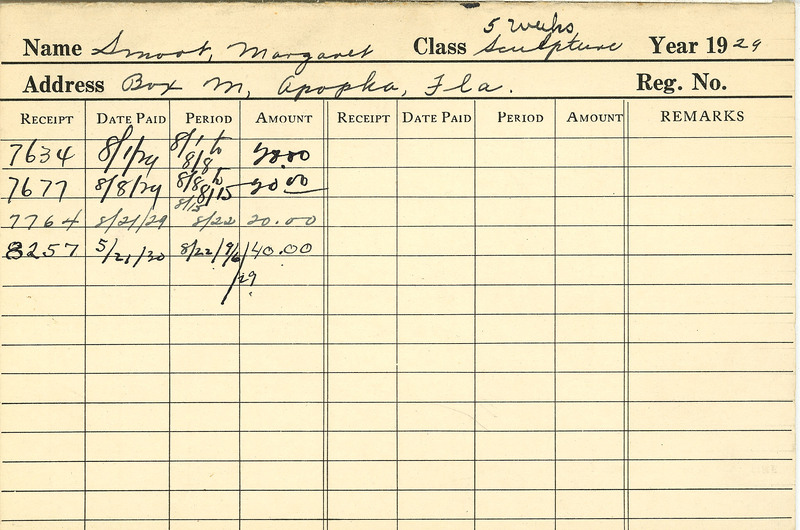 5 weeks
Name Smoot, Margaret Class Sculpture Year 1929
Address Box M, Apopka, Fla. Reg. No.
RECEIPT DATE PAID PERIOD AMOUNT RECEIPT DATE PAID PERIOD AMOUNT REMARKS
7634 8/1/29 8/1 to 8/8 20.00
7677 8/8/29 8/8 to 8/15 20.00
7764 8/21/29 8/15 8/22 20.00
8257 5/21/30 8/22/9/6/29 40.00